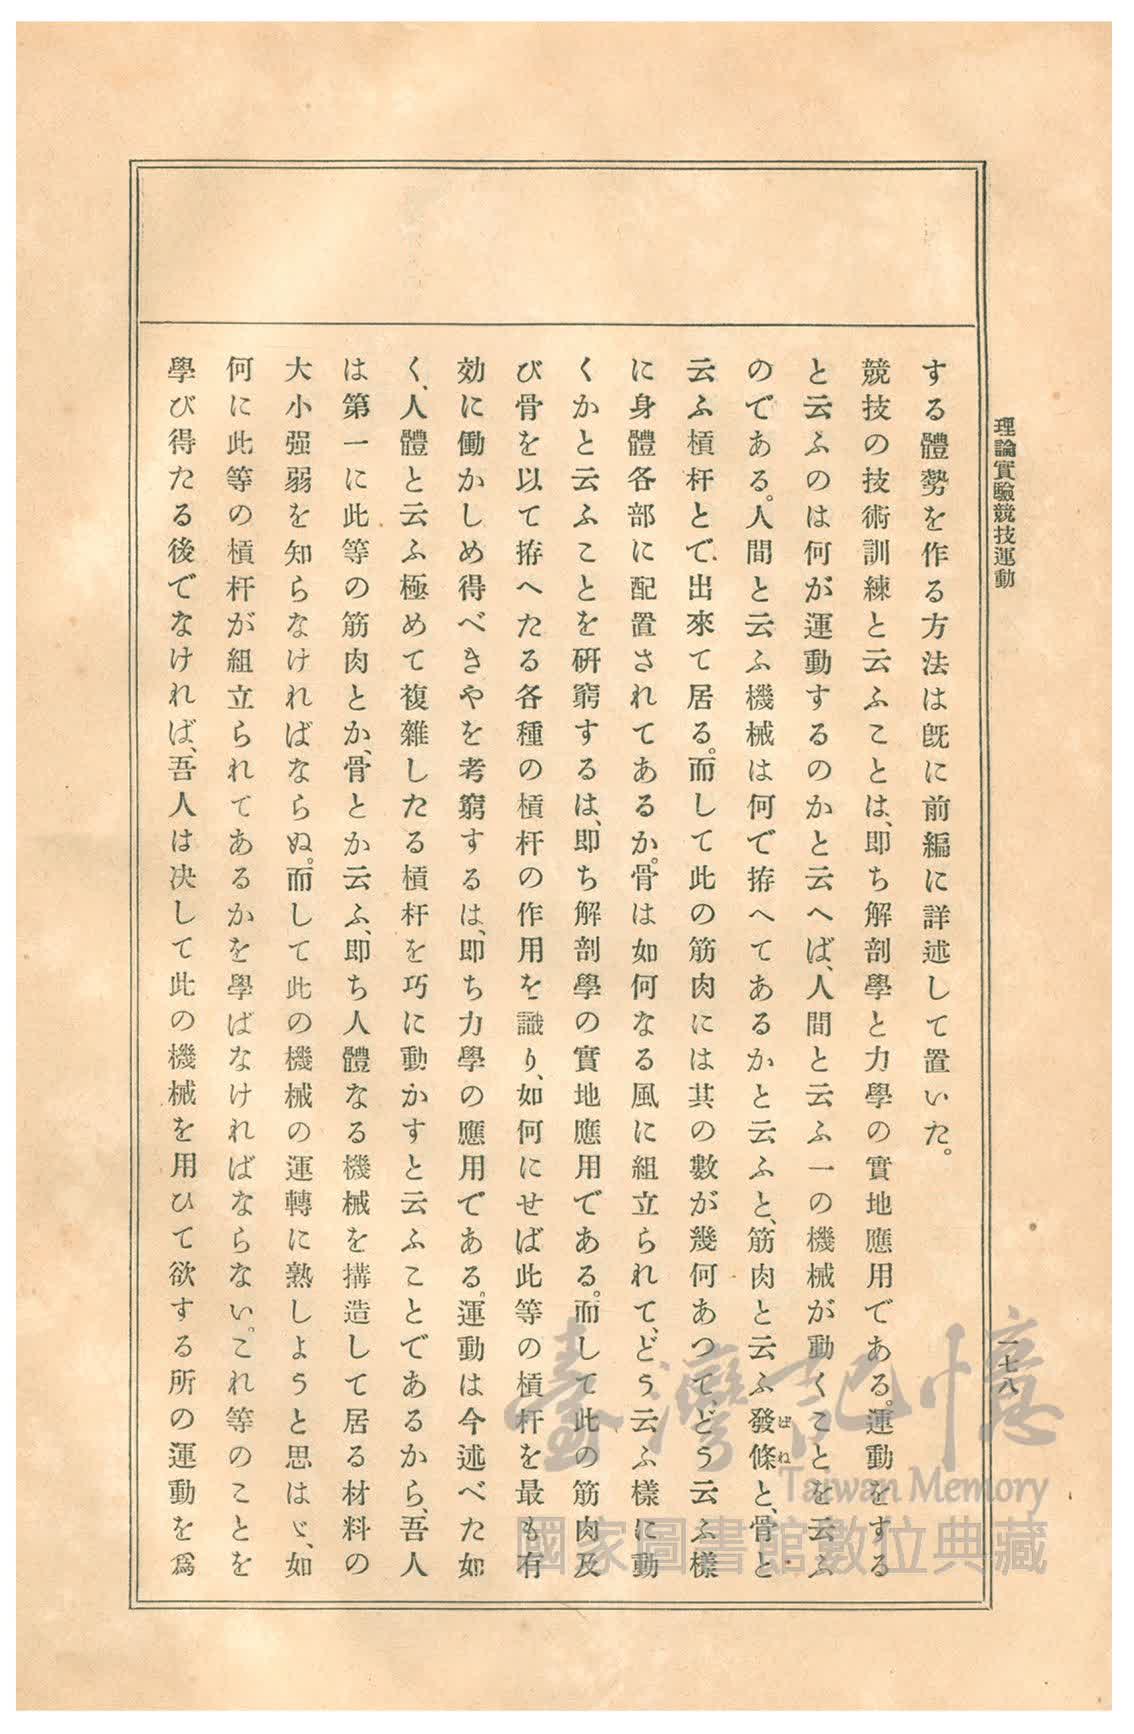 理論實驗競技運動
一七八
する體勢を作る方法は既に前編に詳述して置いた。
競技の技術訓練と云ふことは、卽ち解剖學と力學の實地應用である。運動をする
と云ふのは何が運動するのかと云へば、人間と云ふ一の機械が動くことを云ふ
のである。人間と云ふ機械は何で拵へてあるかと云ふと、筋肉と云ふ發條と、骨と
ばね
云ふ槓杆とで出來て居る。而して此の筋肉には其の數が幾何あつて、どう云ふ樣
に身體各部に配置されてあるか。骨は如何なる風に組立られて、どう云ふ樣に動
くかと云ふことを硏窮するは、卽ち解剖學の實地應用である。而して此の筋肉及
び骨を以て拵へたる各種の槓杆の作用を識り、如何にせば此等の槓杆を最も有
効に働かしめ得べきやを考窮するは、卽ち力學の應用である。運動は今述べた如
く、人體と云ふ極めて複雜したる槓杆を巧に動かすと云ふことであるから、吾人
は第一に此等の筋肉とか、骨とか云ふ、卽ち人體なる機械を搆造して居る材料の
大小强弱を知らなければならぬ。而して此の機械の運轉に熟しようと思はゞ、如
何に此等の槓杆が組立られてあるかを學ばなければならない。これ等のことを
學び得たる後でなければ、吾人は決して此の機械を用ひて欲する所の運動を爲
臺灣記憶
Taiwan Memory
國家圖書館數位典藏